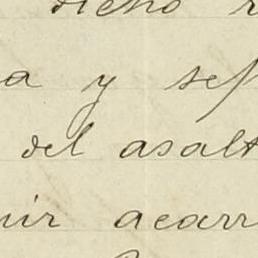 dicho
a y
del asalt
nir acarr